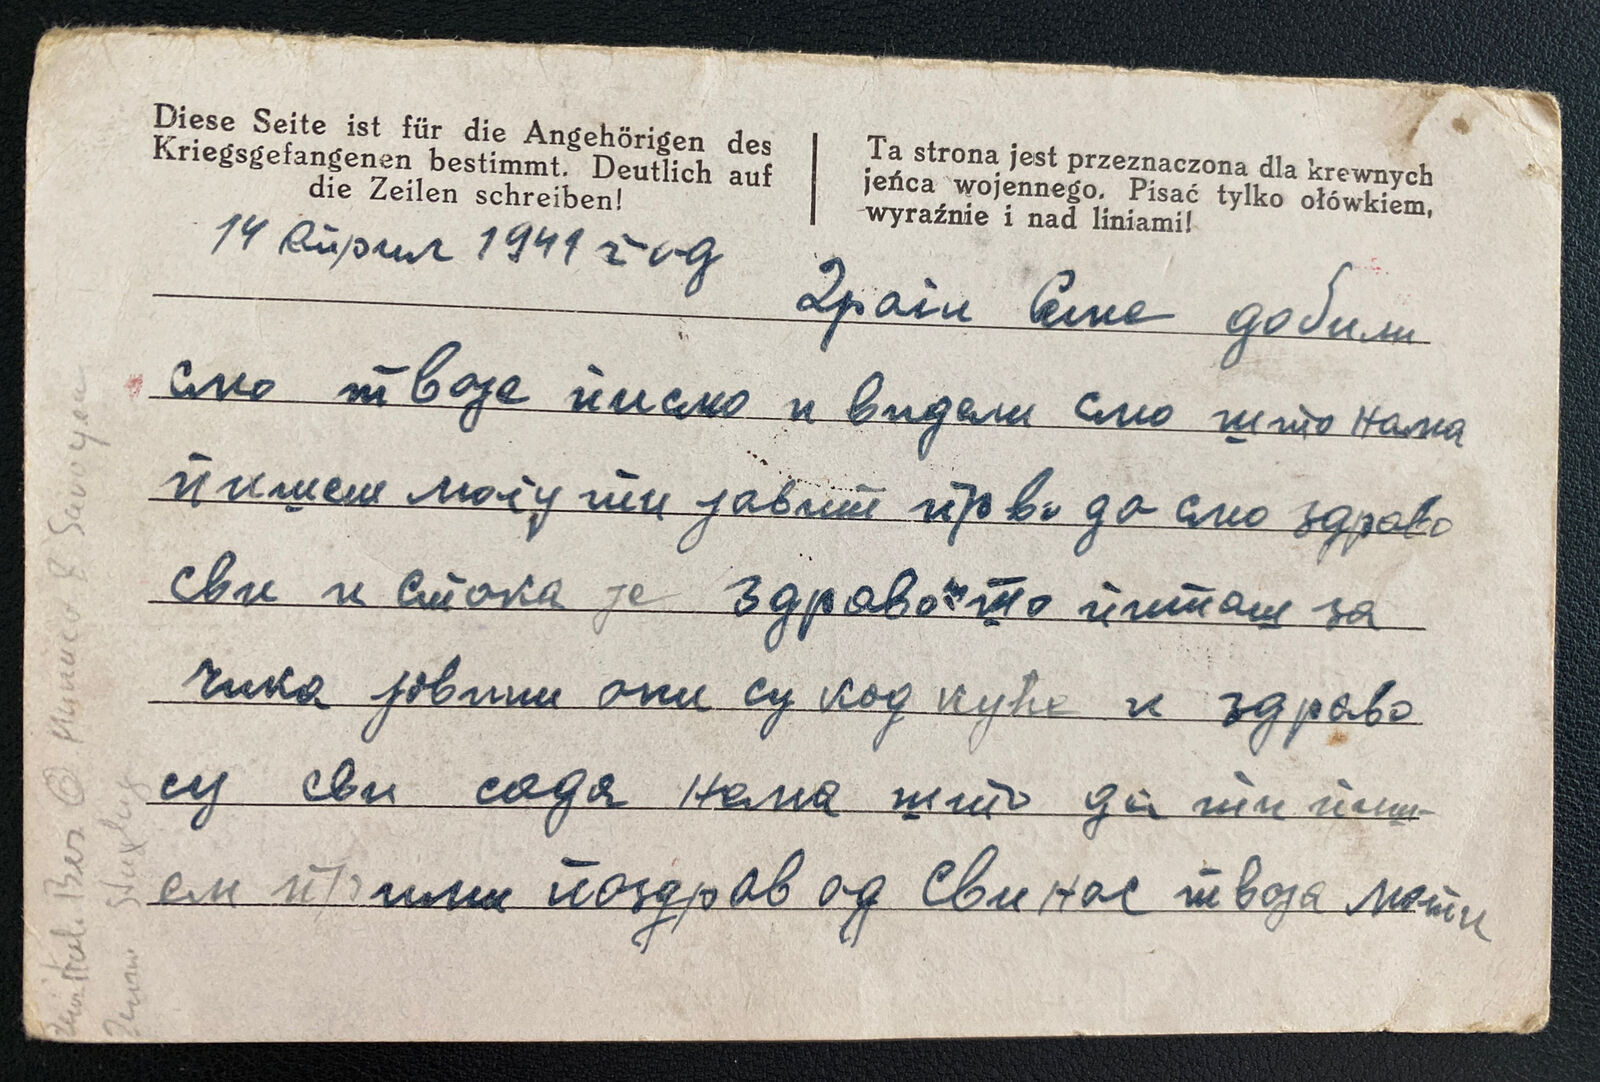 Diese Seite ist für die Angehörigen des
Kriegsgefangenen bestimmt. Deutlich auf
die Zeilen schreiben!
Ta strona jest przeznaczona dla krewnych
jeńca wojennego. Pisać tylko ołówkiem,
wyraźnie i nad liniami!
14 април 1941 год
Драги Сине добили
смо твоје писмо и видели смо што нама
пишеш могу ти јавит прво да смо здраво
сви и стока је здраво што питаш за
чика јовини они су код куће и здраво
су сви сада нема што да ти пиш-
ем прими поздрав од сви нас твоја мати